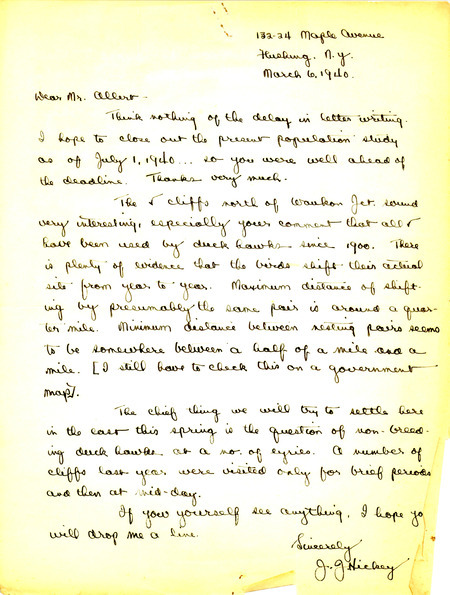 132-34 Maple Avenue
Flushing, N.Y.
March 6, 1940.
Dear Mr. Allert -
Think nothing of the delay in letter writing.
I hope to close out the present population study
as of July 1, 1940... so you were well ahead of
the deadline. Thanks very much.
The cliffs north of Waukon Jct. sound
very interesting, especially your comment that all
have been used by duck hawks since 1900. There
is plenty of evidence that the birds shift their actual
site from year to year. Maximum distance of shift-
ing by presumably the same pair is around a quar-
ter mile. Minimum distance between nesting pairs seems
to be somewhere between a half of a mile and a
mile. [I still have to check this on a government
map].
The chief thing we will try to settle here
in the east this spring is the question of non-breed-
ing duck hawks at a no. of eyries. A number of
cliffs last year were visited only for brief periods
and then at mid-day.
If you yourself see anything, I hope yo
will drop me a line.
Sincerely
J. J Hickey